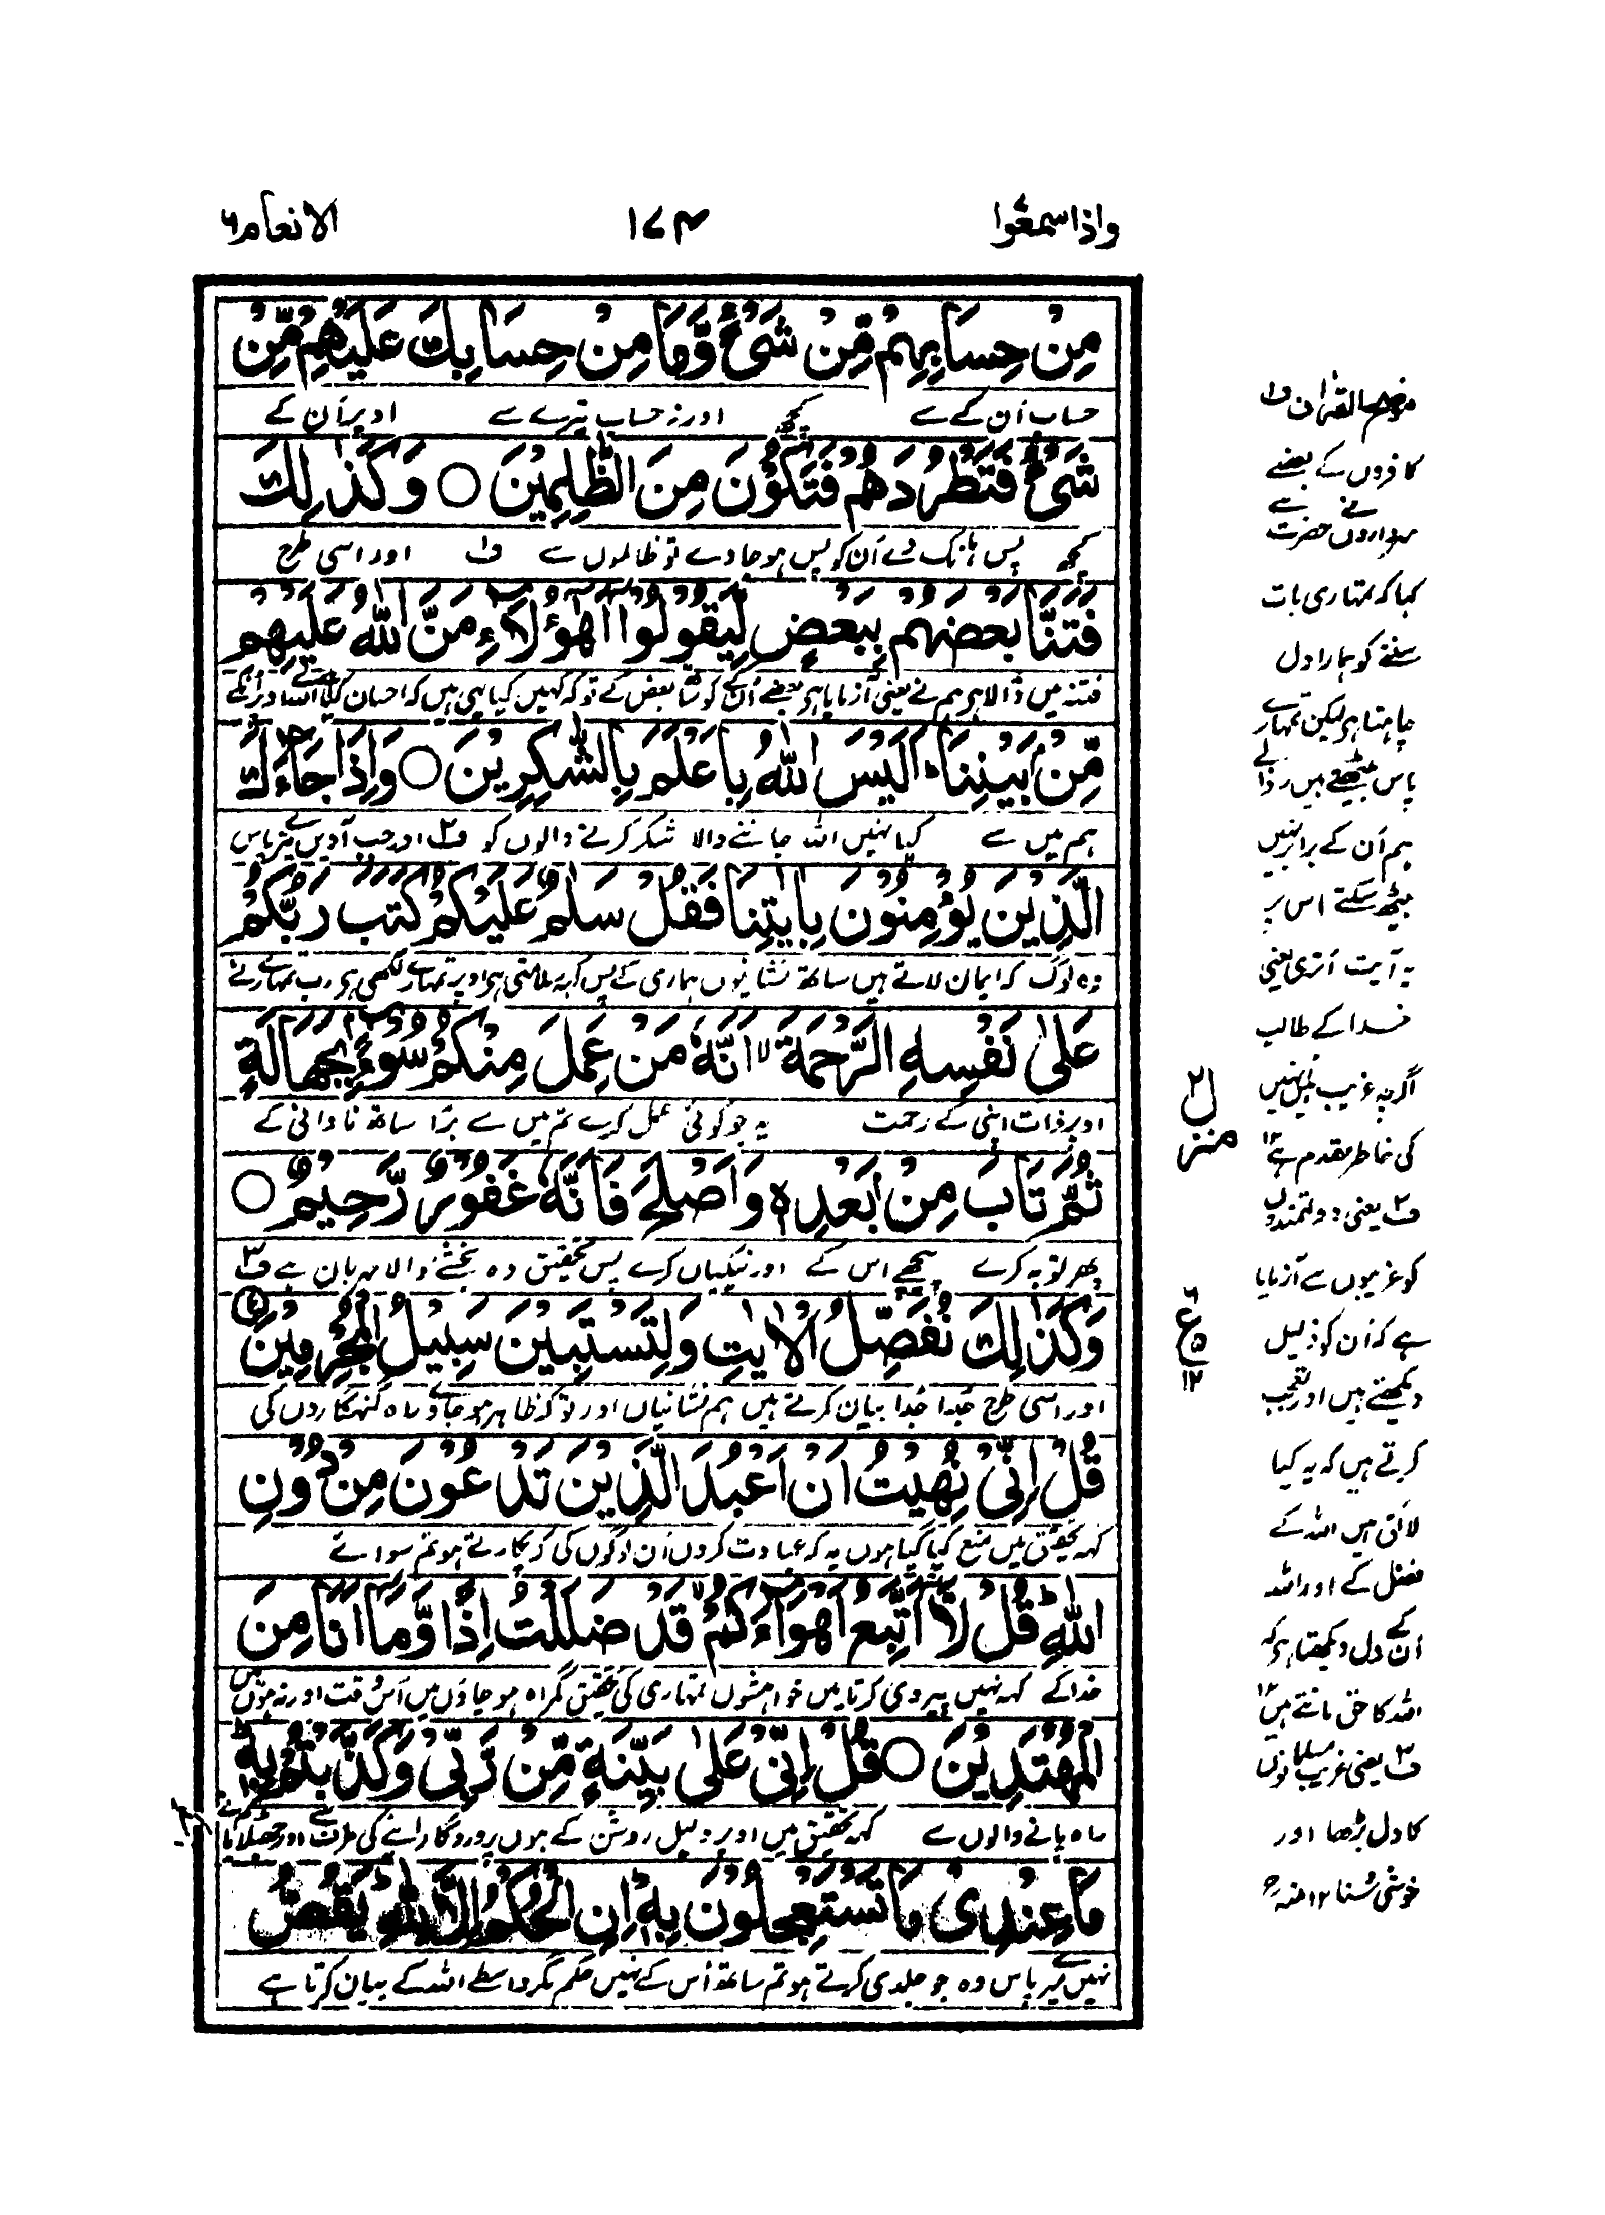 واذاسمعوا
۱۷۴
الانعام ۶
مِنْ حِسَابِهِمْ مِّنْ شَیْءٍ وَّمَا مِنْ حِسَابِكَ عَلَیْهِمْ مِّنْ
حساب اُن کے سے کچھ اور نہ حساب تیرے سے اوپر اُن کے
شَیْءٍ فَتَطْرُدَهُمْ فَتَكُوْنَ مِنَ الظّٰلِمِیْنَ ○ وَكَذٰلِكَ
کچھ پس ہانک دے اُن کو پس ہو جاوے تو ظالموں سے ف۱ اور اسی طرح
فَتَنَّا بَعْضَهُمْ بِبَعْضٍ لِّیَقُوْلُوْۤا اَهٰۤؤُلَآءِ مَنَّ اللّٰهُ عَلَیْهِمْ
فتنہ میں ڈالا ہے ہم نے یعنی آزمایا ہے بعضے اُن کے کو ساتھ بعض کے تو کہ کہیں کیا یہی ہیں کہ احسان کیا اللہ نے اوپر اُنکے
مِّنْۢ بَیْنِنَا ؕ اَلَیْسَ اللّٰهُ بِاَعْلَمَ بِالشّٰكِرِیْنَ ○ وَاِذَا جَآءَكَ
ہم میں سے کیا نہیں اللہ جاننے والا شکر کرنے والوں کو ف۲ اور جب آویں تیرے پاس
الَّذِیْنَ یُؤْمِنُوْنَ بِاٰیٰتِنَا فَقُلْ سَلٰمٌ عَلَیْكُمْ كَتَبَ رَبُّكُمْ
وہ لوگ کہ ایمان لاتے ہیں ساتھ نشانیوں ہماری کے پس کہہ سلامتی ہے اوپر تمہارے لکھی ہے رب تمہارے نے
عَلٰی نَفْسِهِ الرَّحْمَةَ ۙ اَنَّهٗ مَنْ عَمِلَ مِنْكُمْ سُوْٓءًۢا بِجَهَالَةٍ
اوپر ذات اپنی کے رحمت یہ جو کوئی عمل کرے تم میں سے برا ساتھ نادانی کے
ثُمَّ تَابَ مِنْۢ بَعْدِهٖ وَاَصْلَحَ فَاَنَّهٗ غَفُوْرٌ رَّحِیْمٌ ○
پھر توبہ کرے پیچھے اس کے اور نیکیاں کرے پس تحقیق وہ بخشنے والا مہربان ہے ف۳
وَكَذٰلِكَ نُفَصِّلُ الْاٰیٰتِ وَلِتَسْتَبِیْنَ سَبِیْلُ الْمُجْرِمِیْنَ
اور اسی طرح جُدا جُدا بیان کرتے ہیں ہم نشانیاں اور تو کہ ظاہر ہو جاوے راہ گنہگاروں کی
قُلْ اِنِّیْ نُهِیْتُ اَنْ اَعْبُدَ الَّذِیْنَ تَدْعُوْنَ مِنْ دُوْنِ
کہہ تحقیق میں منع کیا گیا ہوں یہ کہ عبادت کروں اُن لوگوں کی کہ پکارتے ہو تم سوائے
اللّٰهِ ؕ قُلْ لَّاۤ اَتَّبِعُ اَهْوَآءَكُمْ ۙ قَدْ ضَلَلْتُ اِذًا وَّمَاۤ اَنَا مِنَ
خدا کے کہہ نہیں پیروی کرتا میں خواہشوں تمہاری کی تحقیق گمراہ ہو جاؤں میں اُس وقت اور نہ ہوں میں
الْمُهْتَدِیْنَ ○ قُلْ اِنِّیْ عَلٰی بَیِّنَةٍ مِّنْ رَّبِّیْ وَكَذَّبْتُمْ بِهٖ ؕ
راہ پانے والوں سے کہہ تحقیق میں اوپر دلیل روشن کے ہوں پروردگار اپنے کی طرف سے اور جھٹلایا
مَا عِنْدِیْ مَا تَسْتَعْجِلُوْنَ بِهٖ ؕ اِنِ الْحُكْمُ اِلَّا لِلّٰهِ ؕ یَقُصُّ
نہیں میرے پاس وہ جو جلدی کرتے ہو تم ساتھ اُس کے نہیں حکم مگر واسطے اللہ کے بیان کرتا ہے
موضح القرآن ف۱
کافروں کے بعضے
سرداروں نے حضرت سے
کہا کہ تمہاری بات
سننے کو ہمارا دل
چاہتا ہے لیکن تمہارے
پاس بیٹھتے ہیں رذالے
ہم اُن کے برابر نہیں
بیٹھ سکتے اس پر
یہ آیت اُتری یعنی
خدا کے طالب
اگرچہ غریب ہیں انہیں
کی خاطر مقدم ہے ۱۲
ف۲ یعنی دولتمندوں
کو غریبوں سے آزمایا
ہے کہ اُن کو ذلیل
دیکھتے ہیں اور تعجب
کرتے ہیں کہ یہ کیا
لائق ہیں اللہ کے
فضل کے اور اللہ
اُن کے دل دیکھتا ہے کہ
اللہ کا حق مانتے ہیں ۱۲
ف۳ یعنی غریب مسلمانوں
کا دل بڑھا اور
خوشی سُنا ۱۲ منہ رح
منزل ۲
۶
ع
۵
۱۲